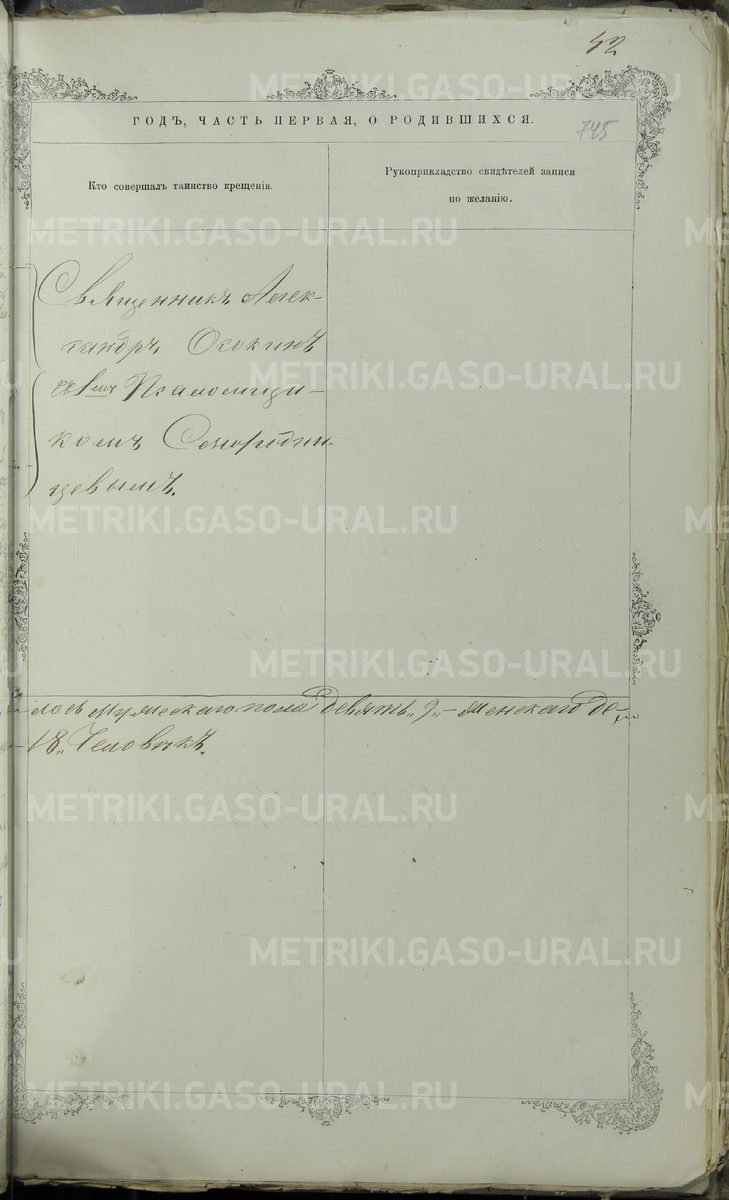 42
745
ГОДЪ, ЧАСТЬ ПЕРВАЯ, О РОДИВШИХСЯ.
Кто совершалъ таинство крещенія.
Рукоприкладство свидѣтелей записи
по желанію.
Священникъ Алек-
сандръ Осокинъ
съ Псаломщи-
комъ
цевымъ.
лось мужескаго пола девять „9„ – женскаго де-
18„ Человѣкъ.
METRIKI.GASO-URAL.RU